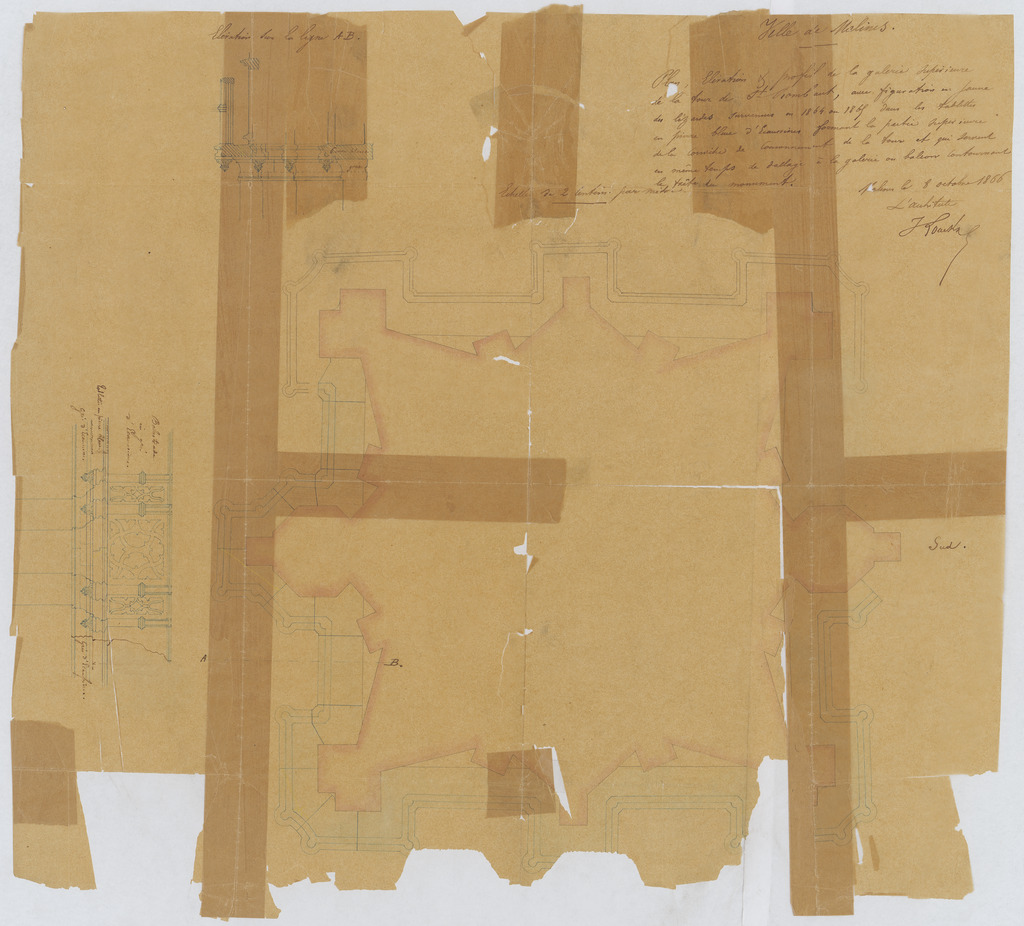 Elévation sur la ligne A B.
Ville de Malines.
Plan, Elévation & profil de la galerie supérieure
de la tour de St Rombaut, avec figuration en jaune
des lézardes survenues en 1864 en 1865 dans les tablettes
en pierre bleue d'Ecaussines formant la partie supérieure
de la corniche de couronnement de la tour et qui servent
en même temps de dallage à la galerie ou balcon contournant
la toiture du monument.
Echelle de 2 centim. par mètre
Malines le 8 octobre 1866
L'architecte
Balustrade
en grès
Sud.
A
B.